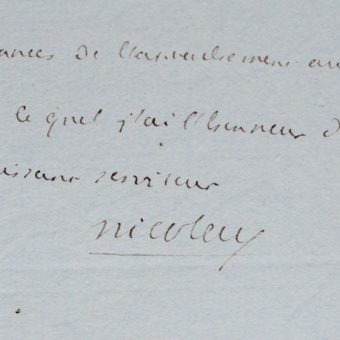 ances de l'attachement av
le quel j'ai l'honneur d
issant serviteur
nicolay